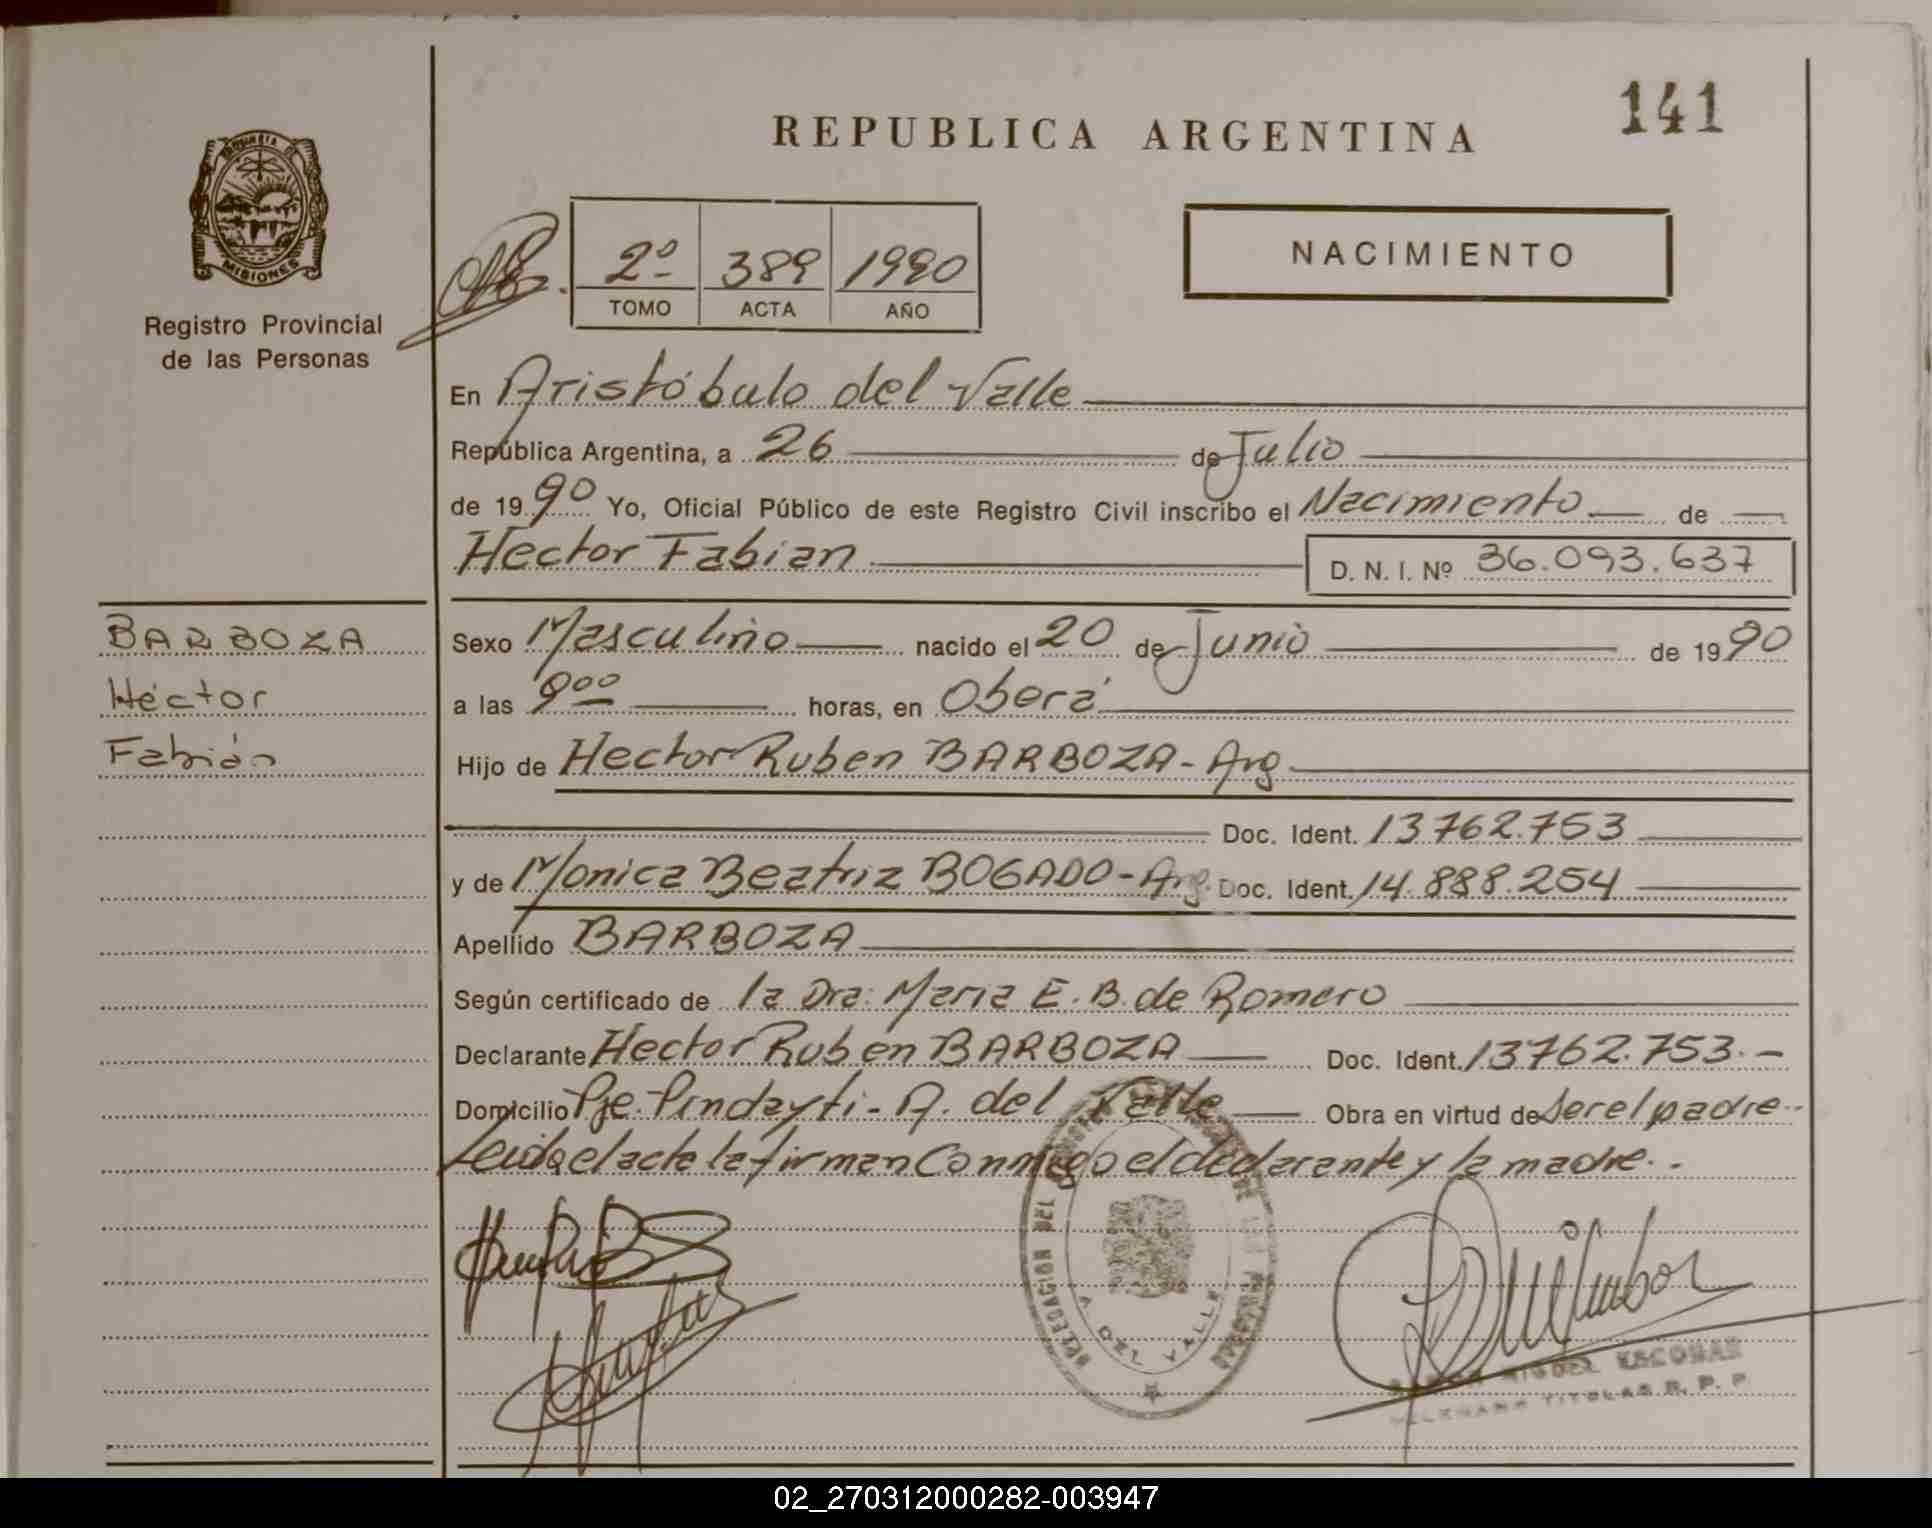 141
REPUBLICA ARGENTINA
MISIONES
Registro Provincial
de las Personas
2º 389 1990
TOMO ACTA AÑO
NACIMIENTO
En Aristóbulo del Valle
República Argentina, a 26 de Julio
de 1990 Yo, Oficial Público de este Registro Civil inscribo el Nacimiento de
Hector Fabian D. N. I. Nº 36.093.637
BARBOZA
Héctor
Fabián
Sexo Masculino nacido el 20 de Junio de 1990
a las 9⁰⁰ horas, en Oberá
Hijo de Hector Ruben BARBOZA - Arg
Doc. Ident. 13762.753
y de Monica Beatriz BOGADO - Arg. Doc. Ident. 14.888.254
Apellido BARBOZA
Según certificado de la Dra: Maria E. B. de Romero
Declarante Hector Ruben BARBOZA Doc. Ident. 13762.753.-
Domicilio Pje. Pindayti - A. del Valle Obra en virtud de ser el padre--
Leida el acta la firman Conmigo el declarante y la madre..
DELEGACION DEL
A. DEL VALLE
MIGUEL ESCOBAR
TITULAR R. P. P.
02_270312000282-003947